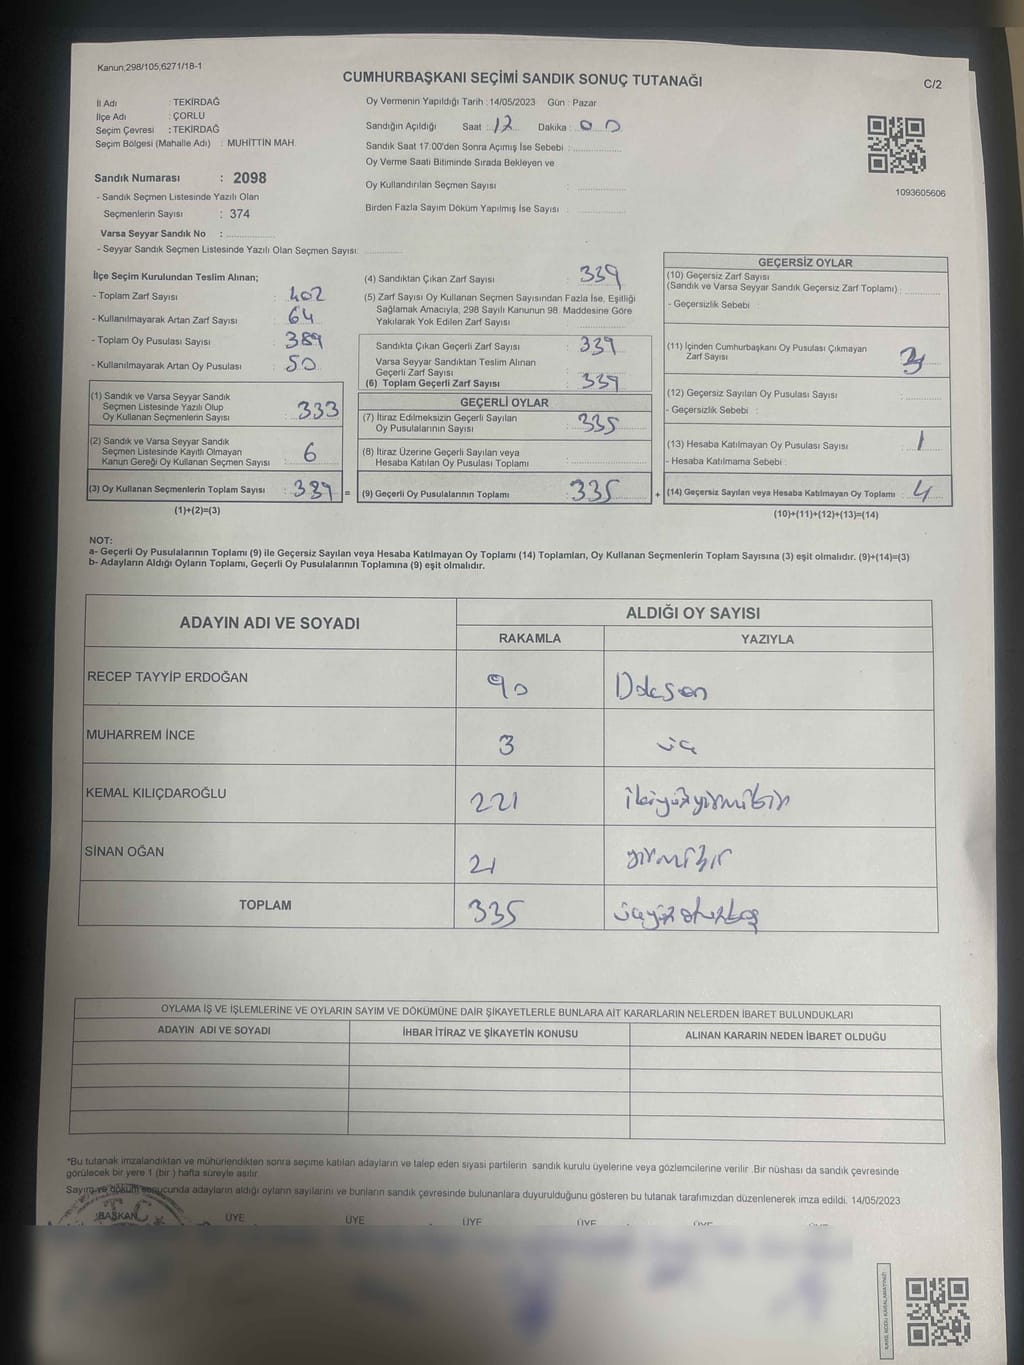 Kanun,298/105,6271/18-1
CUMHURBAŞKANI SEÇİMİ SANDIK SONUÇ TUTANAĞI
C/2
İl Adı : TEKİRDAĞ
İlçe Adı : ÇORLU
Seçim Çevresi : TEKİRDAĞ
Seçim Bölgesi (Mahalle Adı) : MUHİTTİN MAH.
Oy Vermenin Yapıldığı Tarih : 14/05/2023 Gün : Pazar
Sandığın Açıldığı Saat : 12 Dakika : 00
Sandık Saat 17:00'den Sonra Açımış İse Sebebi :
Oy Verme Saati Bitiminde Sırada Bekleyen ve
Oy Kullandırılan Seçmen Sayısı :
Birden Fazla Sayım Döküm Yapılmış İse Sayısı :
1093605606
Sandık Numarası : 2098
- Sandık Seçmen Listesinde Yazılı Olan
Seçmenlerin Sayısı : 374
Varsa Seyyar Sandık No :
- Seyyar Sandık Seçmen Listesinde Yazılı Olan Seçmen Sayısı:
İlçe Seçim Kurulundan Teslim Alınan;
- Toplam Zarf Sayısı : 402
- Kullanılmayarak Artan Zarf Sayısı : 64
- Toplam Oy Pusulası Sayısı : 389
- Kullanılmayarak Artan Oy Pusulası : 50
(1) Sandık ve Varsa Seyyar Sandık
Seçmen Listesinde Yazılı Olup
Oy Kullanan Seçmenlerin Sayısı : 333
(2) Sandık ve Varsa Seyyar Sandık
Seçmen Listesinde Kayıtlı Olmayan
Kanun Gereği Oy Kullanan Seçmen Sayısı : 6
(3) Oy Kullanan Seçmenlerin Toplam Sayısı : 339 =
(1)+(2)=(3)
(4) Sandıktan Çıkan Zarf Sayısı : 339
(5) Zarf Sayısı Oy Kullanan Seçmen Sayısından Fazla İse, Eşitliği
Sağlamak Amacıyla, 298 Sayılı Kanunun 98. Maddesine Göre
Yakılarak Yok Edilen Zarf Sayısı :
Sandıkta Çıkan Geçerli Zarf Sayısı : 339
Varsa Seyyar Sandıktan Teslim Alınan
Geçerli Zarf Sayısı :
(6) Toplam Geçerli Zarf Sayısı : 339
GEÇERLİ OYLAR
(7) İtiraz Edilmeksizin Geçerli Sayılan
Oy Pusulalarının Sayısı : 335
(8) İtiraz Üzerine Geçerli Sayılan veya
Hesaba Katılan Oy Pusulası Toplamı :
(9) Geçerli Oy Pusulalarının Toplamı : 335 +
GEÇERSİZ OYLAR
(10) Geçersiz Zarf Sayısı
(Sandık ve Varsa Seyyar Sandık Geçersiz Zarf Toplamı) :
- Geçersizlik Sebebi :
(11) İçinden Cumhurbaşkanı Oy Pusulası Çıkmayan
Zarf Sayısı : 3
(12) Geçersiz Sayılan Oy Pusulası Sayısı :
- Geçersizlik Sebebi :
(13) Hesaba Katılmayan Oy Pusulası Sayısı : 1
- Hesaba Katılmama Sebebi :
(14) Geçersiz Sayılan veya Hesaba Katılmayan Oy Toplamı : 4
(10)+(11)+(12)+(13)=(14)
NOT:
a- Geçerli Oy Pusulalarının Toplamı (9) ile Geçersiz Sayılan veya Hesaba Katılmayan Oy Toplamı (14) Toplamları, Oy Kullanan Seçmenlerin Toplam Sayısına (3) eşit olmalıdır. (9)+(14)=(3)
b- Adayların Aldığı Oyların Toplamı, Geçerli Oy Pusulalarının Toplamına (9) eşit olmalıdır.
ADAYIN ADI VE SOYADI
ALDIĞI OY SAYISI
RAKAMLA YAZIYLA
RECEP TAYYİP ERDOĞAN 90 Doksan
MUHARREM İNCE 3 üç
KEMAL KILIÇDAROĞLU 221 ikiyüzyirmibir
SİNAN OĞAN 21 yirmibir
TOPLAM 335 üçyüzotuzbeş
OYLAMA İŞ VE İŞLEMLERİNE VE OYLARIN SAYIM VE DÖKÜMÜNE DAİR ŞİKAYETLERLE BUNLARA AİT KARARLARIN NELERDEN İBARET BULUNDUKLARI
ADAYIN ADI VE SOYADI İHBAR İTİRAZ VE ŞİKAYETİN KONUSU ALINAN KARARIN NEDEN İBARET OLDUĞU
*Bu tutanak imzalandıktan ve mühürlendikten sonra seçime katılan adayların ve talep eden siyasi partilerin sandık kurulu üyelerine veya gözlemcilerine verilir .Bir nüshası da sandık çevresinde
görülecek bir yere 1 (bir ) hafta süreyle asılır.
Sayım ve döküm sonucunda adayların aldığı oyların sayılarını ve bunların sandık çevresinde bulunanlara duyurulduğunu gösteren bu tutanak tarafımızdan düzenlenerek imza edildi. 14/05/2023
T.C.
BAŞKAN ÜYE ÜYE ÜYE ÜYE ÜYE